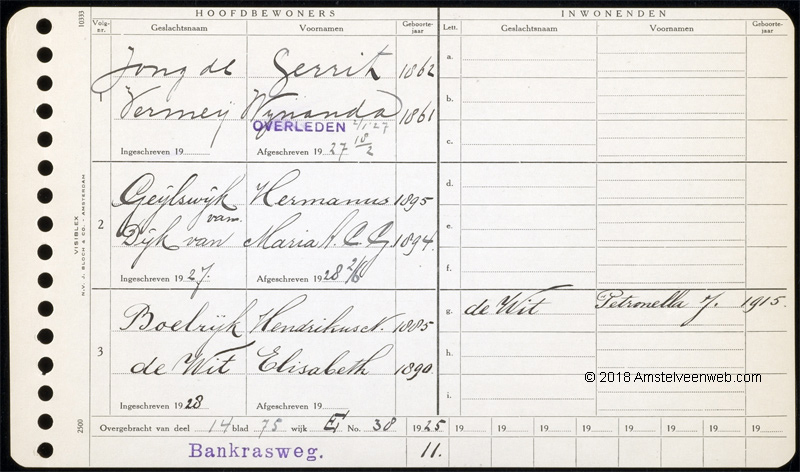 HOOFDBEWONERS INWONENDEN
Volg-nr. Geslachtsnaam Voornamen Geboorte-jaar Lett. Geslachtsnaam Voornamen Geboorte-jaar
10333
1
Jong de Gerrit 1862
Vermeij Wijnanda 1861
OVERLEDEN 2/1-27
Ingeschreven 19 Afgeschreven 19 27 18/2
a.
b.
c.
2
Geijlswijk van Hermanus 1895
Dijk van Maria A. C. G. 1894
Ingeschreven 19 27. Afgeschreven 19 28
d.
e.
f.
3
Boelrijk Hendrikus N. 1885
de Wit Elisabeth 1890
Ingeschreven 19 28 Afgeschreven 19
g. de Wit Petronella J. 1915
h.
i.
© 2018 Amstelveenweb.com
VISIBLEX
N.V. J. BLOCH & CO. - AMSTERDAM
2500
Overgebracht van deel 14 blad 75 wijk E No. 38 1925 19 19 19 19 19 19 19 19
Bankrasweg. 11.